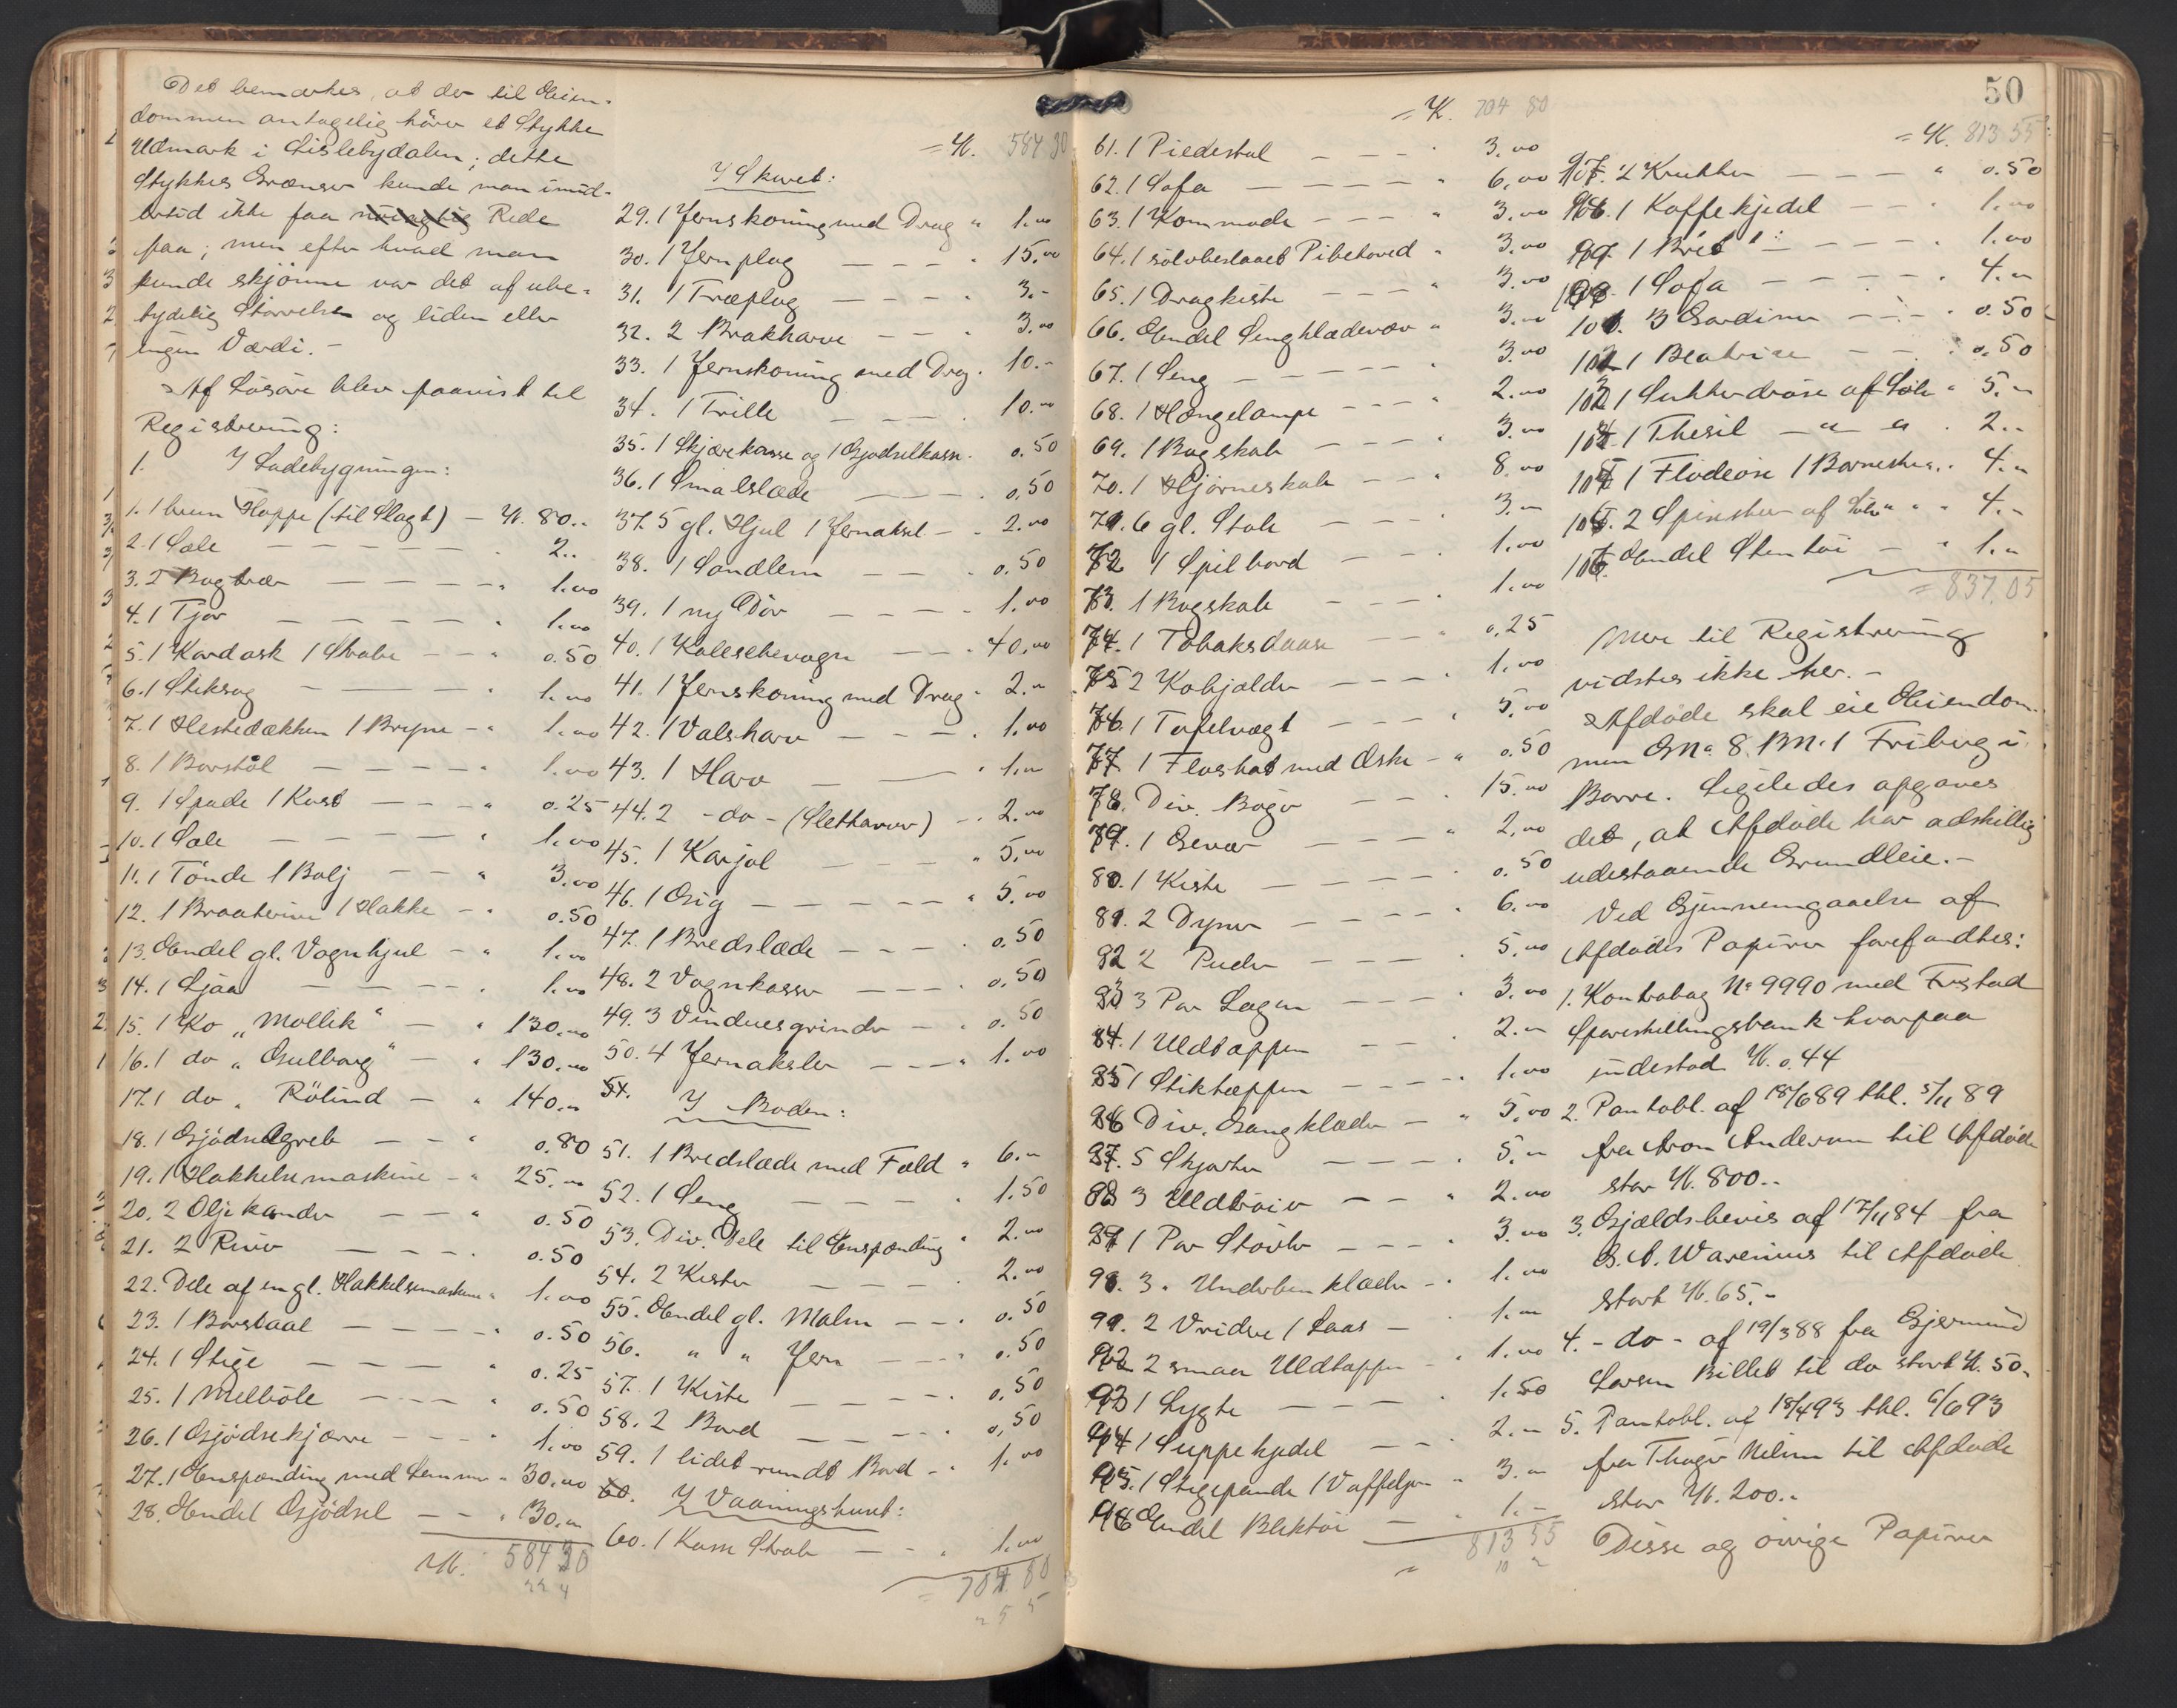 Det bemærkes, at der til Eien-
dommen antagelig hører et Stykke
Udmark i Lislebydalen; dette
Stykkes Grænser kunde man imid-
lertid ikke faa nöiagtig Rede
paa; men efter hvad man
kunde skjönne var det af ube-
tydelig Størrelse og liden eller
ingen Værdi.-
Af Løsøre blev paavist til
Registrering:
1. I Ladebygningen:
1. 1 brun Hoppe (til Slagt) - K. 80..
2. 1 Sæle - - - - - 2..
3. 2 Bogtrær - - - - " 1.00
4. 1 Tjor - - - - - " 1.00
5. 1 Kardask 1 Skrabe - - " 0.50
6. 1 Stiksag - - - - " 1.00
7. 1 Hestedækken 1 Bryne - " 1.00
8. 1 Borstöl - - - - " 1.00
9. 1 Spade 1 Kost - - - " 0.25
10. 1 Sæle - - - - " 1.00
11. 1 Tönde 1 Balj - - " 3.00
12. 1 Braaterive 1 Hakke - " 0.50
13. Endel gl. Vognhjul - " 1.00
14. 1 Ljaa - - - - . 1.00
15. 1 Ko "Mollik" - " 130.00
16. 1 do "Gulborg" - " 130.00
17. 1 do " Rölind - " 140.00
18. 1 Gjödselgreb - - " 0.80
19. 1 Hakkelsemaskine - " 25.00
20. 2 Oljekander - - " 0.50
21. 2 River - - - . 0.50
22. Dele af en gl. Hakkelsemaskine " 1.00
23. 1 Borstaal - - - - " 0.50
24. 1 Stige - - - - " 0.25
25. 1 Melböle - - - " 0.50
26. 1 Gjödselkjærre - - - " 1.00
27. 1 Enspænding med Lemmer " 30.00
28. Endel Gjödsel - - " 30.00
K. 584 30
= K. 584 30
I Skuret:
29. 1 Jernskoning med Drag " 1.00
30. 1 Jernplog - - - - 15.00
31. 1 Træplog - - - - . 3.-
32. 2 Brakharve - - . 3.00
33. 1 Jernskoning med Drag . 10.-
34. 1 Trille - - - . 10.00
35. 1 Skjærekasse og 1 Gjødselkasse . 0.50
36. 1 Smalslæde - - - . 0,50
37. 5 gl. Hjul 1 Jernaksel - . 2.00
38. 1 Sandlem - - - . 0.50
39. 1 ny Dör - - - . 1.00
40. 1 Kaleschevogn - - - 40.00
41. 1 Jernskoning med Drag " 2.00
42. 1 Valsharv - - - . 1.00
43. 1 Harv - - " 1.00
44. 2 - do - (Sletharver) - . 2.00
45. 1 Karjol - - - - " 5.00
46. 1 Gig - - - - - " 5.00
47. 1 Bredslæde - - - . 0.50
48. 2 Vognkasser - - - . 0.50
49. 3 Vinduesgrinder - . 0.50
50. 4 Jernaksler - - - . 1.00
51. I Boden:
51. 1 Bredslæde med Fæld " 6.00
52. 1 Seng - - - - . 1.50
53. Div. Dele til Enspænding " 2.00
54. 2 Kister - - - - . 2.00
55. Endel gl. Malm - - . 0.50
56. " " Jern - - - . 0.50
57. 1 Kiste - - - - . 0,50
58. 2 Bord - - - - . 0,50
59. 1 lidet rundt Bord - . 1.00
60. I Vaaningshuset:
60. 1 Karm Strale - - . 1.00
= 704 80
= K. 704 80
61. 1 Piedestal - - - . 3.00
62. 1 Sofa - - - - . 6,00
63. 1 Kommode - - - " 3.00
64. 1 sölvbeslaaet Pibehoved " 3.00
65. 1 Dragkiste - - - " 3.00
66. Endel Sengklædevær " 3.00
67. 1 Seng - - - - - " 3.00
68. 1 Hængelampe - - - " 2.00
69. 1 Bogskab - - - - . 3.00
70. 1 Hjörneskab - - - " 8.00
71. 6 gl. Stole - - - . 3.00
72 1 Spilbord - - - . 1.00
73. 1 Bogskab - - - . 1.00
74. 1 Tobaksdaase - - " 0.25
75 2 Kobjælder - - - - . 1.00
76. 1 Tafelvægt - - - - . 5.00
77 1 Floshat med Æske - " 0.50
78. Div. Böger - - - . 15.00
79. 1 Gevær - - - - " 2.00
80. 1 Kiste - - - - - . 0.50
81. 2 Dyner - - - - - . 6.00
82 2 Puder - - - - . 5.00
83 3 Par Lagen - - - - . 3.00
84. 1 Uldtæppe - - - . 2.00
85 1 Stiktæppe - - - - . 1.00
86 Div. Gangklæder - " 5.00
87. 5 Skjorter - - - . 5.00
88 3 Uldtröier - - - " 2.00
89 1 Par Stövler - - - . 3.00
90. 3 " Underbenklæder - . 1.00
91. 2 Vridere 1 Laas - . 1.00
92 2 smaa Uldtæpper - . 1.00
93 1 Lygte - - - - . 1.50
94 1 Suppekjedel - - . 2.00
95. 1 Stegepande 1 Vaffeljern " 3.00
96 Endel Bliktöi - . 1.-
" 813 55
50
= K. 813 55
97. 2 Krukker - - - - " 0.50
98. 1 Kaffekjedel - - . 1.00
99. 1 Bret - - - - . 1.00
100. 1 Sofa - - - - . 4.00
101. 3 Gardiner - - - . 0.50
102 1 Beatrice - - . 0.50
103 1 Sukkerdaase af Sölv " 5.00
104. 1 Thesil - " - " . 2..
105 1 Flödeöse 1 Barneske " . 4.00
106. 2 Spiseskeer af Sölv " . 4.-
107. Endel Stentöi - " 1.00
= 837.05
Mere til Registrering
vidstes ikke her.-
Afdøde skal eie Eiendom-
men GNo 8. BN. 1 Friberg i
Borre. Ligeledes opgaves
det, at Afdøde har adskillig
udestaaende Grundleie.-
Ved Gjennemgaaelse af
Afdødes Papirer forefandtes:
1. Kontrabog No 9990 med Frstad
Spareskillingsbank hvorpaa
indestod K. 0.44
2. Pantobl. af 18/6 89 thl. 5/11 89
fra Aron Andersen til Afdøde
stor K. 800..
3. Gjældsbevis af 17/11 84 fra
G. A. Warenius til Afdøde
stort K. 65.-
4. - do - af 19/3 88 fra Gjermund
Larsen Billet til do stort K. 50.
5. Pantobl. af 18/4 93 thl. 6/6 93
fra Thager Nilsen til Afdøde
stor K. 200..
Disse og øvrige Papirer